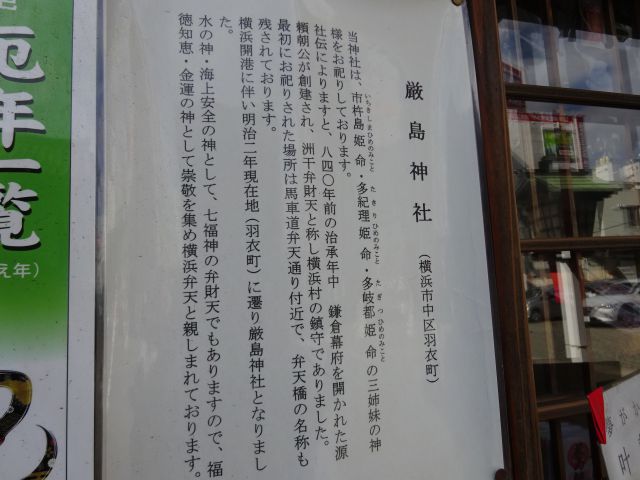 厳島神社
(横浜市中区羽衣町)
当神社は、市杵島姫命・多紀理姫命・多岐都姫命の三姉妹の神
いちきしまひめのみこと
たきりひめのみこと
たぎつひめのみこと
様をお祀りしております。
社伝によりますと、八四〇年前の治承年中 鎌倉幕府を開かれた源
頼朝公が創建され、洲干弁財天と称し横浜村の鎮守でありました。
最初にお祀りされた場所は馬車道弁天通り付近で、弁天橋の名称も
残されております。
横浜開港に伴い明治二年現在地(羽衣町)に遷り厳島神社となりまし
た。
水の神・海上安全の神として、七福神の弁財天でもありますので、福
徳知恵・金運の神として崇敬を集め横浜弁天と親しまれております。
厄年一覧
え年)
叶